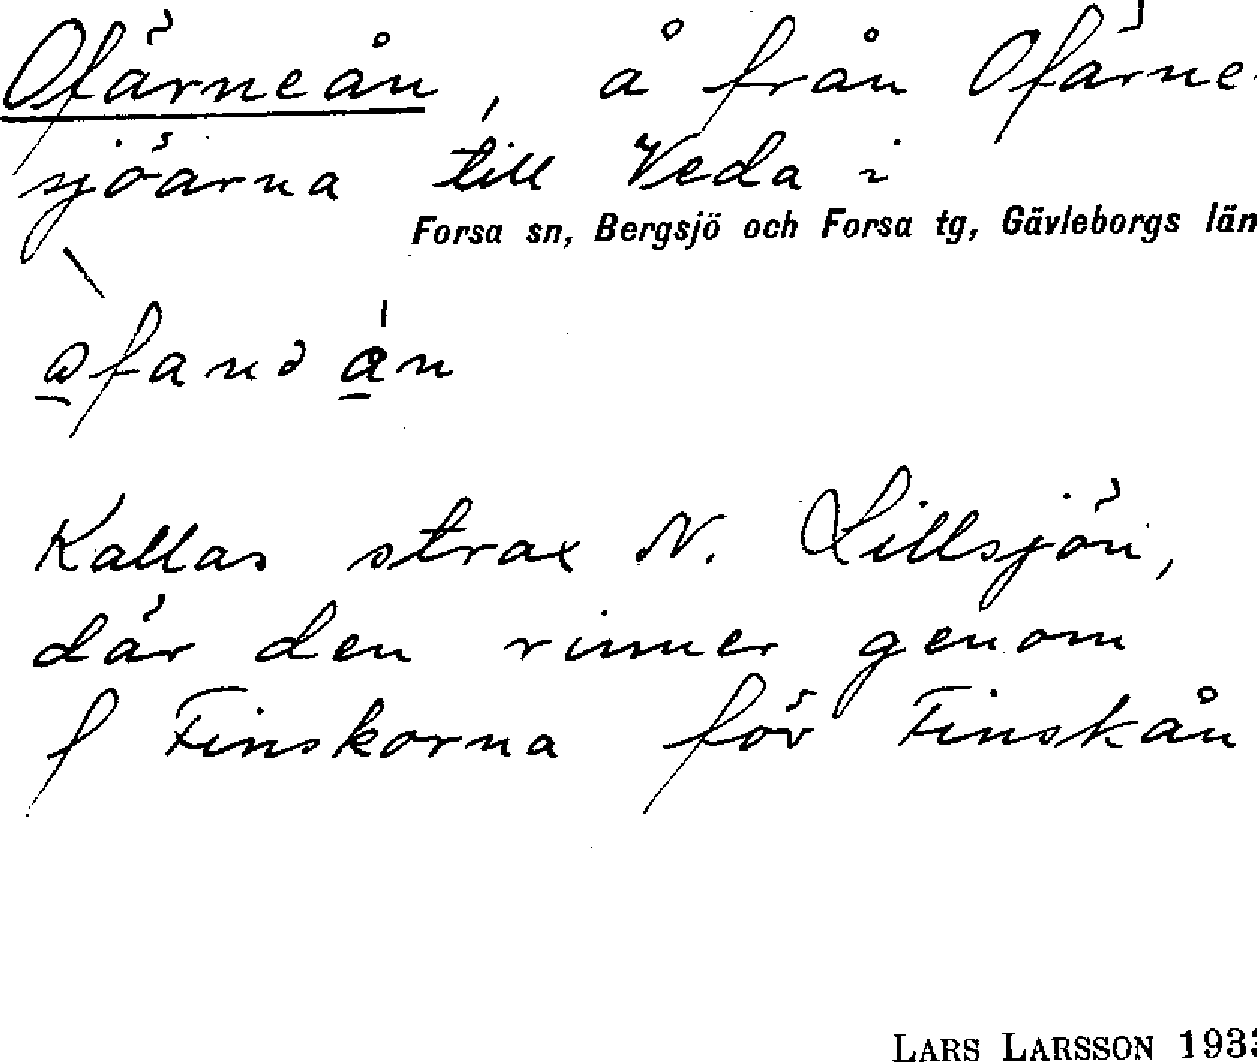 Ofärneån, å från Ofärne-
sjöarna till Veda i
Forsa sn, Bergsjö och Forsa tg, Gävleborgs län
Kallas strax N. Lillsjön,
där den rinner genom
f Finskorna för Finskån
LARS LARSSON 193